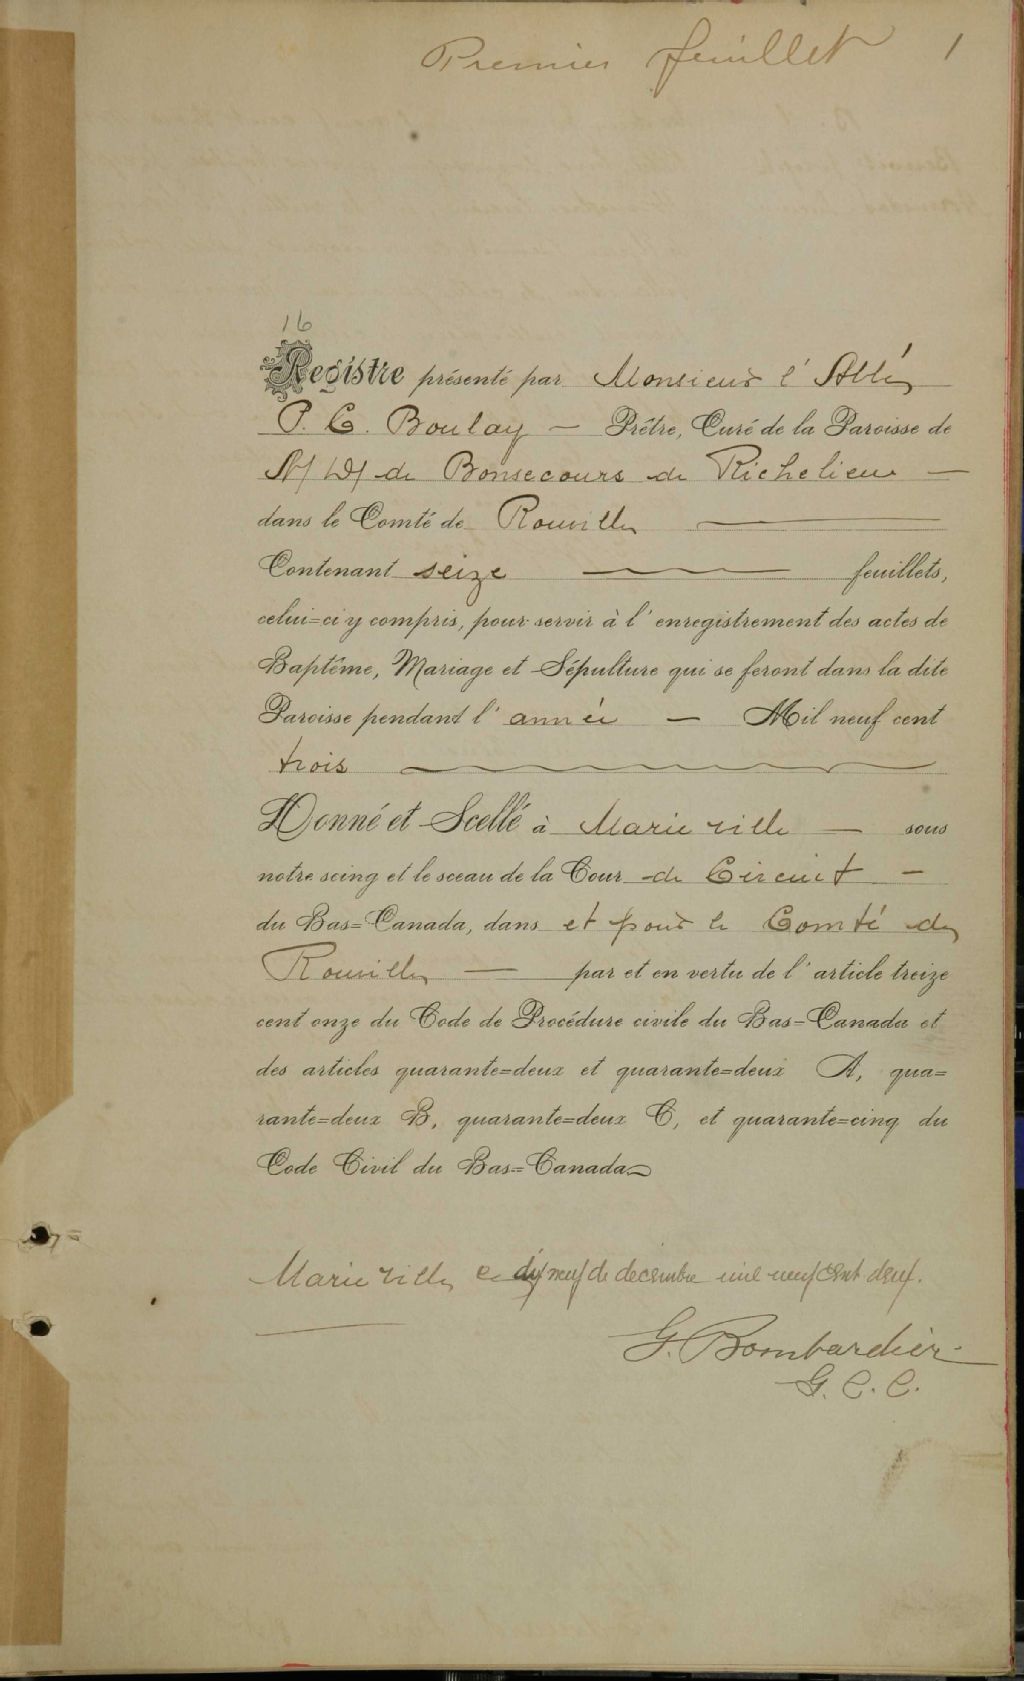 Premier feuillet 1
16
Registre présenté par Monsieur l'Abbé
P. C. Boulay — Prêtre, Curé de la Paroisse de
N/ D/ de Bonsecours de Richelieu —
dans le Comté de Rouville —
Contenant seize — feuillets,
celui=ci y compris, pour servir à l'enregistrement des actes de
Baptême, Mariage et Sépulture qui se feront dans la dite
Paroisse pendant l'année — Mil neuf cent
trois —
Donné et Scellé à Marieville — sous
notre seing et le sceau de la Cour de Circuit —
du Bas=Canada, dans et pour le Comté de
Rouville — par et en vertu de l'article treize
cent onze du Code de Procédure civile du Bas=Canada et
des articles quarante=deux et quarante=deux A, qua=
rante=deux B, quarante=deux C, et quarante=cinq du
Code Civil du Bas=Canada—
Marieville ce dix neuf de decembre mil neuf cent deux.
G. Bombardier
G. C. C.